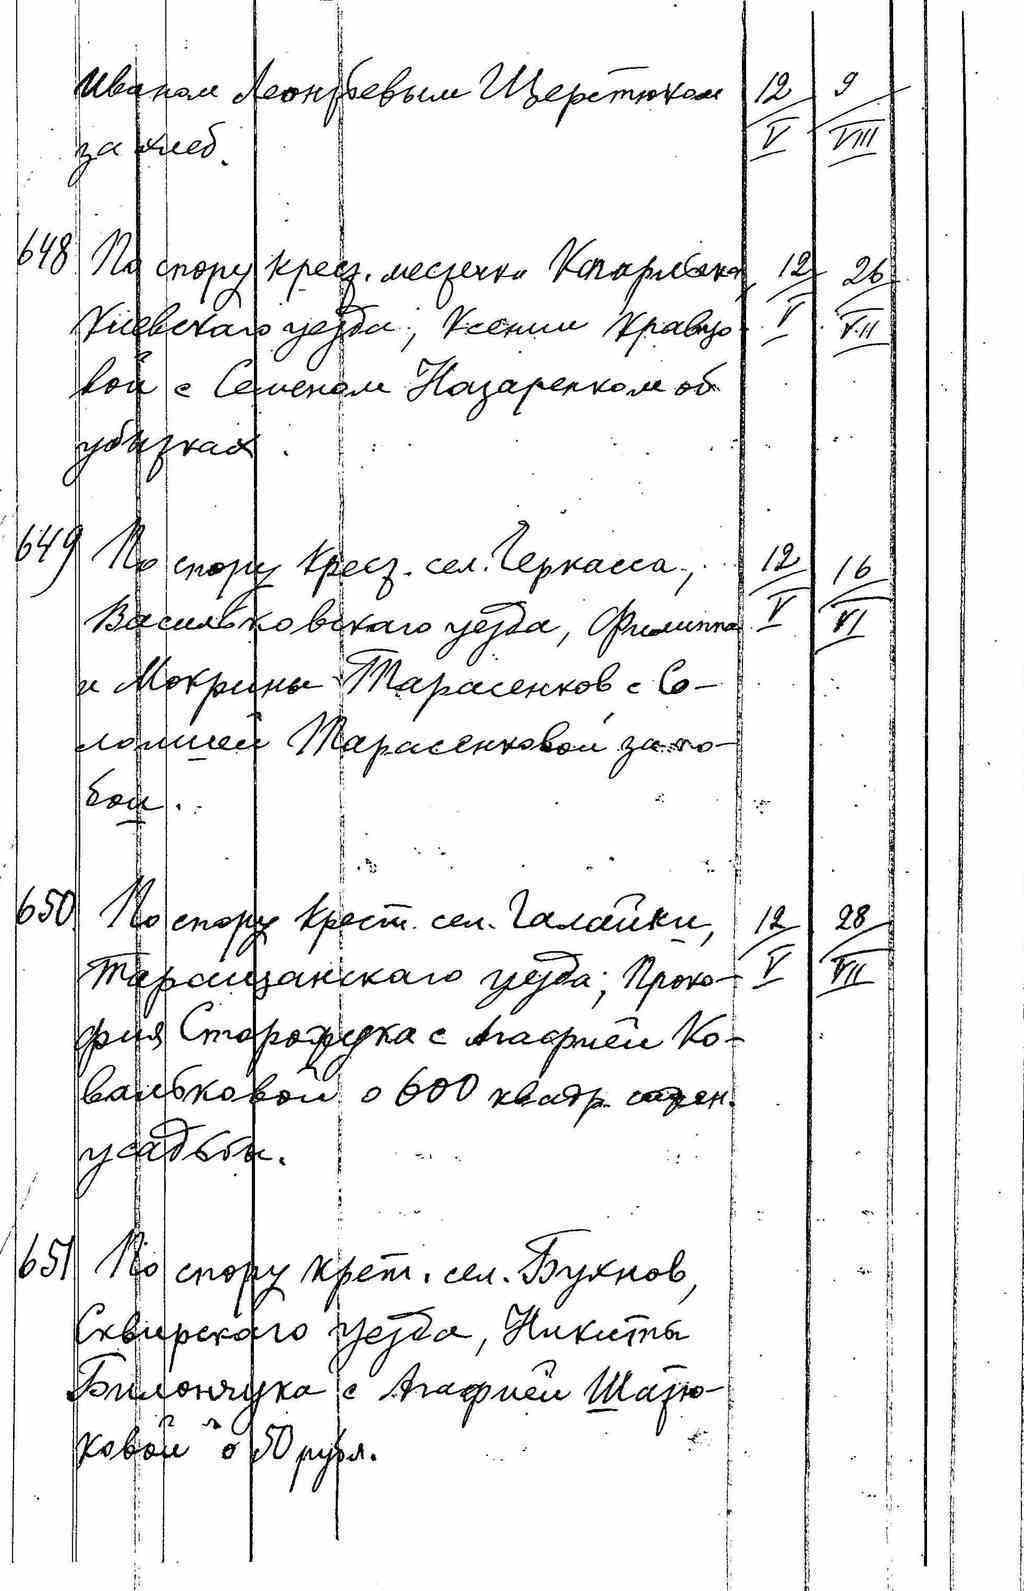 Иваном Леонтьевым Щерстюком 12 9
за хлеб. V VIII
648 По спору крест. местечка Кагарлыка, 12 26
Киевскаго уезда, Ксении Кравцо- V VII
вой с Семеном Назаренком об
убытках.
649 По спору крест. сел. Черкасса, 12 16
Васильковскаго уезда, Филиппа V VI
и Мокрины Тарасенков с Со-
ломией Тарасенковой за по-
бои.
650 По спору крест. сел. Галайки, 12 28
Таращанскаго уезда, Проко- V VII
фия Сторожука с Агафией Ко-
вальковой о 600 квадр. усадьбы.
651 По спору крет. сел. Бухнов,
Сквирскаго уезда, Никиты
Билончука с Агафией Шатю-
ковой о 50 рубл.